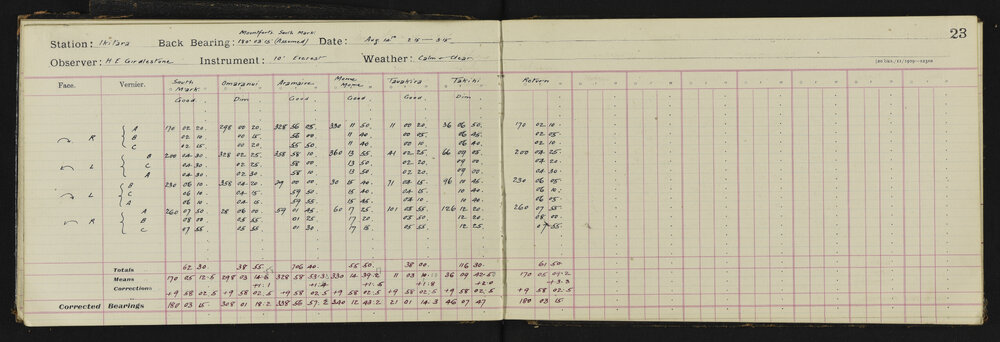 23
Mountfort's South Mark
Station: Ikitara Back Bearing: 180° 03 15 (Assumed) Date: Aug 12th 2.15 — 3.15
Observer: H.E. Girdlestone Instrument: 10" Everest Weather: Calm & Clear
Face. Vernier. South Mark Omaranui Aramaire Mome Mome Tauakira Takihi Return
Good Dim Good Good Good Dim
R A 170 02 20. 298 00 20. 328 56 05. 330 11 50. 11 00 20. 36 06 50. 170 02 10.
B 02 10. 00 15. 56 00 11 40. 00 05. 06 45. 02 05.
C 02 15. 00 20. 55 50 11 40. 00 10. 06 40. 02 10.
L B 200 04 30. 328 02 25. 358 58 10. 360 13 55. 41 02 25. 66 09 05. 200 04 25.
C 04 30. 02 25. 58 00 13 50. 02 20. 09 00. 04 20.
A 04 30. 02 30. 58 10. 13 50. 02 20. 09 00. 04 30.
L B 230 06 10. 358 04 20. 29 00 00. 30 15 40. 71 04 15. 96 10 45. 230 06 05.
C 06 10. 04 15. 59 50. 15 40. 04 15. 10 40. 06 10.
A 06 10. 04 15. 59 55. 15 45. 04 10. 10 40. 06 05.
R A 260 07 50. 28 06 00. 59 01 45. 60 17 25. 101 05 55. 126 12 20. 260 07 55.
B 08 00. 05 55. 01 25. 17 20. 05 50. 12 20. 08 00.
C 07 55. 05 55. 01 30. 17 15. 05 55. 12 25. 07 55.
Totals 62 30. 38 55. 706 40. 55 50. 38 00. 116 30. 61 50.
Means 170 05 12.5 298 03 14.6 328 58 53.3 330 14 39.2 11 03 10. 36 09 42.5 170 05 09.2
+1.1 +1.4 +1.5 +1.8 +2.0 +3.3
Corrections +9 58 02.5 +9 58 02.5 +9 58 02.5 +9 58 02.5 +9 58 02.5 +9 58 02.5 +9 58 02.5
Corrected Bearings 180 03 15. 308 01 18.2 338 56 57.2 340 12 43.2 21 01 14.3 46 07 47 180 03 15